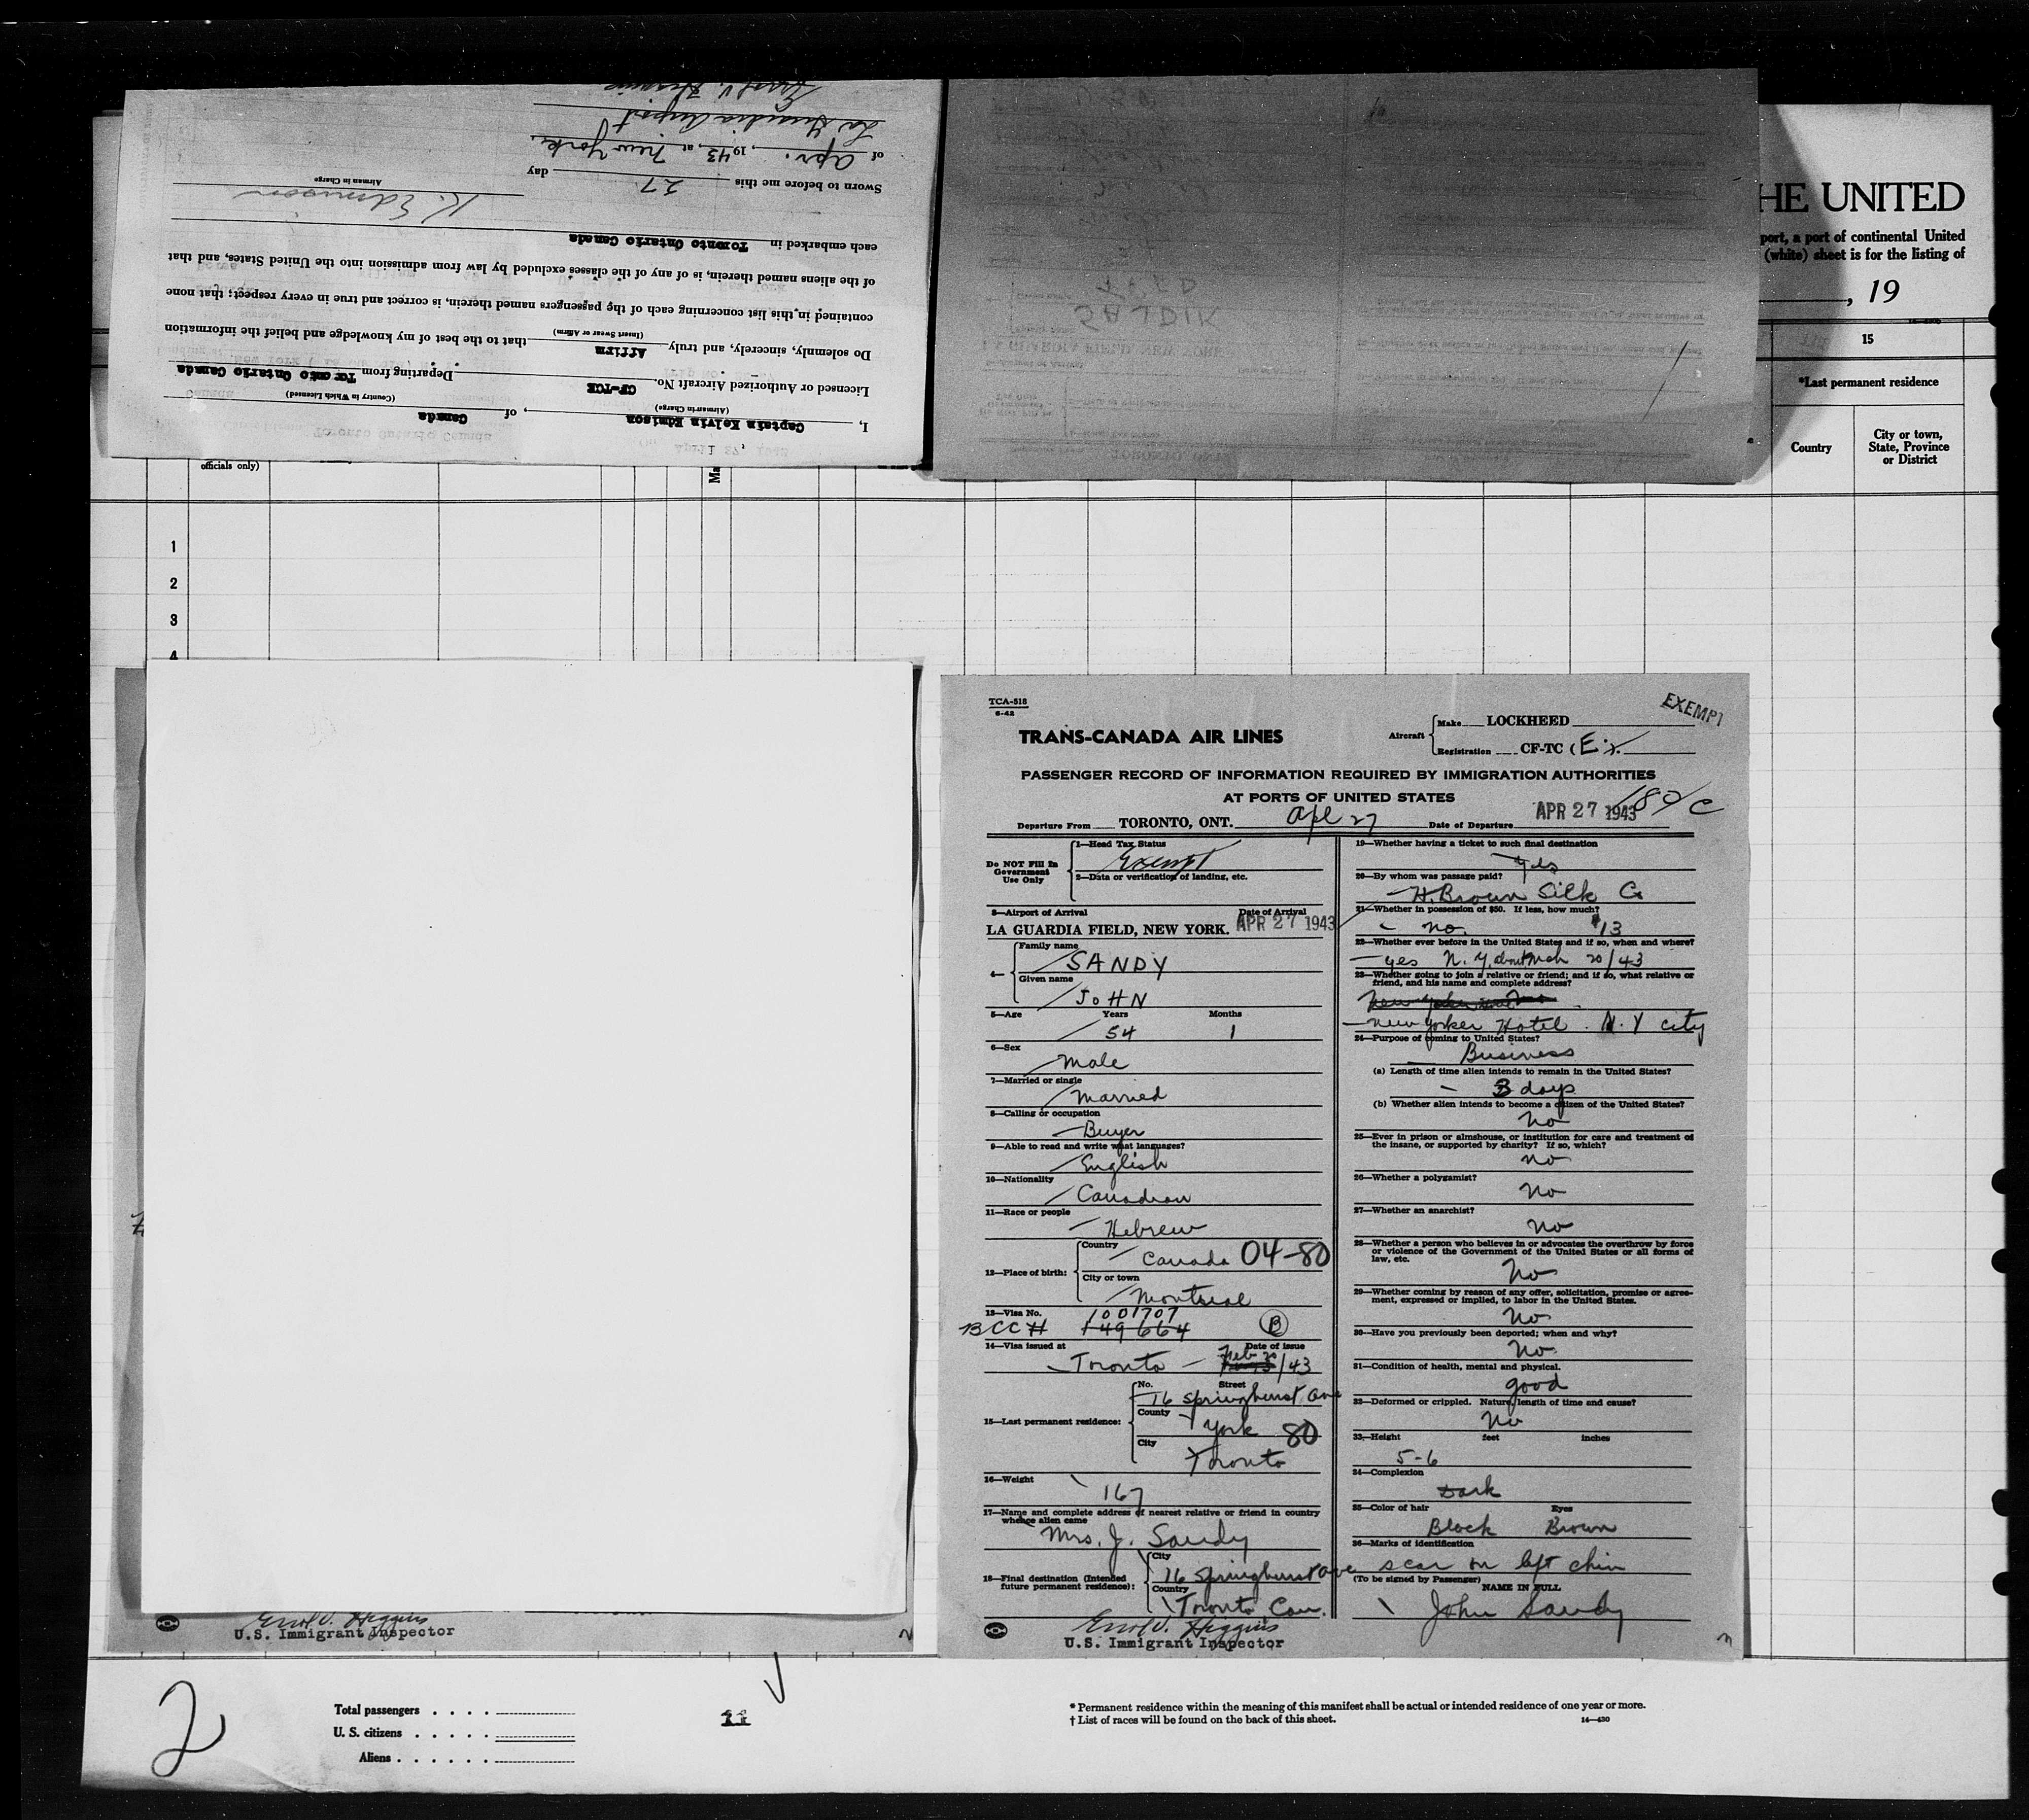 Errol V. Higgins
La Guardia Airport
of Apr. , 1943, at New York.
Sworn to before me this 27 day
K. Edmison
Airman in Charge
each embarked in Toronto Ontario Canada
of the aliens named therein, is of any of the classes excluded by law from admission into the United States, and that
contained in this list concerning each of the passengers named therein, is correct and true in every respect; that none
(Insert Swear or Affirm)
Do solemnly, sincerely, and truly Affirm that to the best of my knowledge and belief the information
Licensed or Authorized Aircraft No. CF-TCE Departing from Toronto Ontario Canada
(Airman in Charge) (Country in Which Licensed)
I, Captain Kelvin Edmison , of Canada
HE UNITED
port, a port of continental United
(white) sheet is for the listing of
, 19
15
*Last permanent residence
Country
City or town,
State, Province
or District
officials only)
Ma
1
2
3
4
TCA-518
6-42
TRANS-CANADA AIR LINES
Aircraft
Make LOCKHEED
Registration CF-TC (E).
EXEMPT
PASSENGER RECORD OF INFORMATION REQUIRED BY IMMIGRATION AUTHORITIES
AT PORTS OF UNITED STATES
180/C
Departure From TORONTO, ONT. Apl 27 Date of Departure APR 27 1943
Do NOT Fill In
Government
Use Only
1—Head Tax Status
Exempt
2—Data or verification of landing, etc.
3—Airport of Arrival Date of Arrival
LA GUARDIA FIELD, NEW YORK. APR 27 1943
4—
Family name
SANDY
Given name
JOHN
5—Age Years Months
54 1
6—Sex
Male
7—Married or single
Married
8—Calling or occupation
Buyer
9—Able to read and write what languages?
English
10—Nationality
Canadian
11—Race or people
Hebrew
12—Place of birth:
Country
Canada 04-80
City or town
Montreal
13—Visa No. 1001707
BCC# 149664 B
14—Visa issued at Date of issue
Toronto - Feb 20/43
15—Last permanent residence:
No. Street
16 Springhurst Ave
County
York 80
City
Toronto
16—Weight
167
17—Name and complete address of nearest relative or friend in country
whence alien came
Mrs. J. Sandy
18—Final destination (Intended
future permanent residence):
City
16 Springhurst Ave
Country
Toronto Can.
Errol V. Higgins
U.S. Immigrant Inspector
19—Whether having a ticket to such final destination
Yes
20—By whom was passage paid?
H. Brown Silk Co
21—Whether in possession of $50. If less, how much?
no. $13
22—Whether ever before in the United States and if so, when and where?
yes N.Y. about Mch 20/43
23—Whether going to join a relative or friend; and if so, what relative or
friend, and his name and complete address?
New Yorker Hotel . N.Y city
24—Purpose of coming to United States?
Business
(a) Length of time alien intends to remain in the United States?
3 days
(b) Whether alien intends to become a citizen of the United States?
No
25—Ever in prison or almshouse, or institution for care and treatment of
the insane, or supported by charity? If so, which?
no
26—Whether a polygamist?
No
27—Whether an anarchist?
No
28—Whether a person who believes in or advocates the overthrow by force
or violence of the Government of the United States or all forms of
law, etc.
No
29—Whether coming by reason of any offer, solicitation, promise or agree-
ment, expressed or implied, to labor in the United States.
No
30—Have you previously been deported; when and why?
No.
31—Condition of health, mental and physical.
good
32—Deformed or crippled. Nature, length of time and cause?
No
33—Height feet inches
5-6
34—Complexion
Dark
35—Color of hair Eyes
Black Brown
36—Marks of identification
scar on left chin
(To be signed by Passenger)
NAME IN FULL
John Sandy
Errol V. Higgins
U.S. Immigrant Inspector
2
Total passengers
U. S. citizens
Aliens
11
* Permanent residence within the meaning of this manifest shall be actual or intended residence of one year or more.
† List of races will be found on the back of this sheet.
14—430